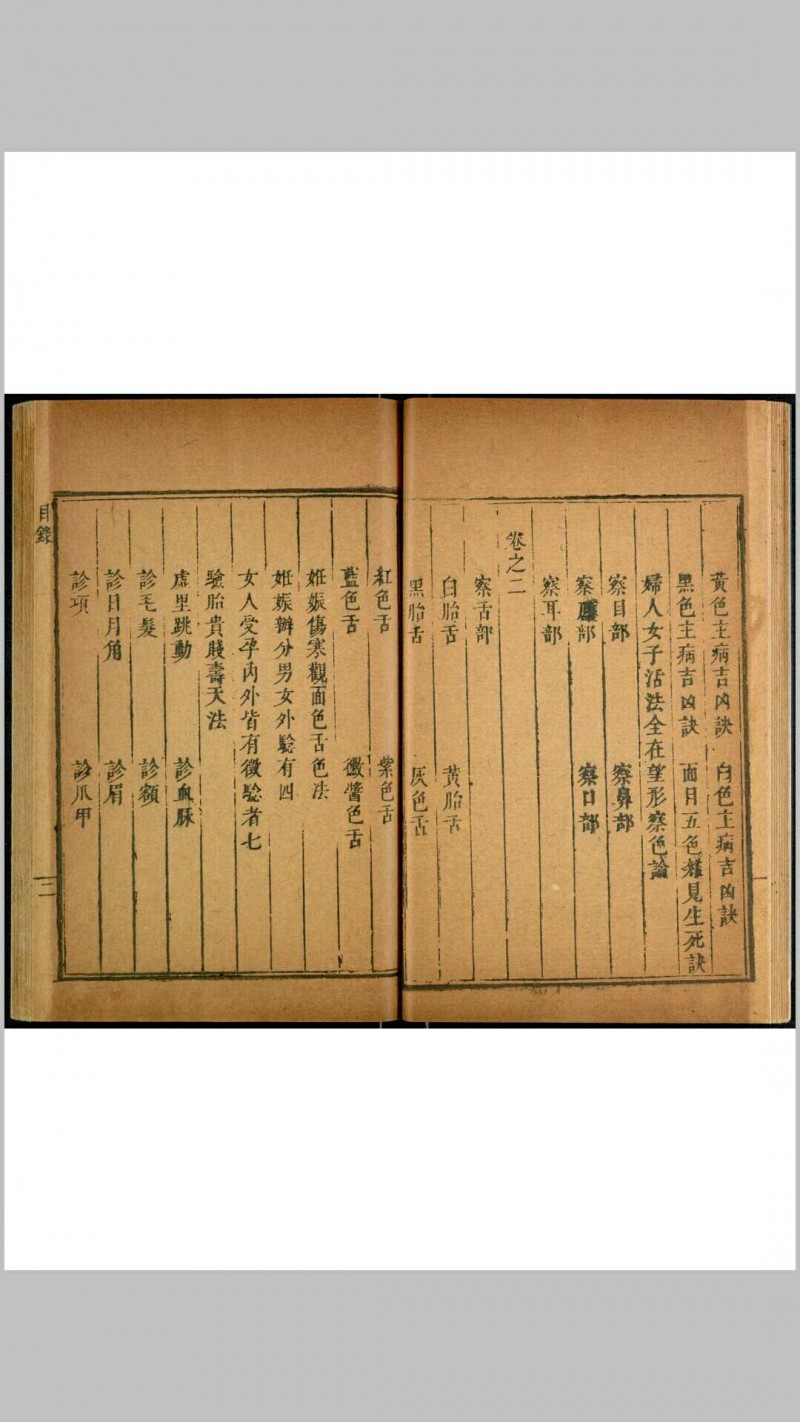 黃色主病吉凶訣 白色主病吉凶訣
黑色主病吉凶訣 面目五色雜見生死訣
婦人女子活法全在望形察色論
察目部 察鼻部
察部 察口部
察耳部
卷之二
察舌部
白胎舌 黃胎舌
黑胎舌 灰色舌
紅色舌 紫色舌
藍色舌 黴醬色舌
妊娠傷寒觀面色舌色法
妊娠辨分男女外驗有四
女人受孕內外皆有徵驗者七
驗胎貴賤壽夭法
虛里跳動 診血脉
診毛髮 診額
診日月角 診眉
診項 診爪甲
目錄
二